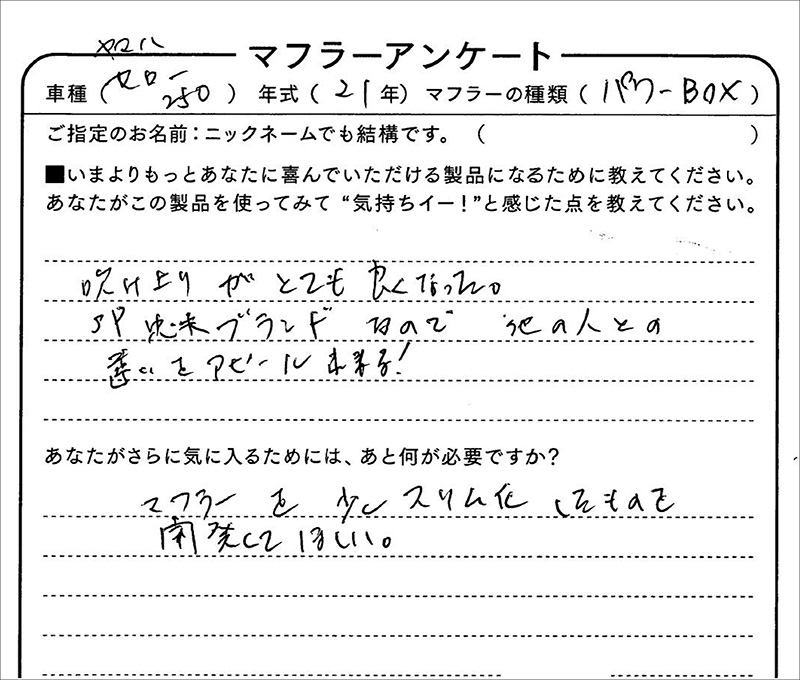 マフラーアンケート
ヤマハ
車種（セロー250） 年式（21年） マフラーの種類（パワーBOX）
ご指定のお名前：ニックネームでも結構です。（　）
■いまよりもっとあなたに喜んでいただける製品になるために教えてください。
あなたがこの製品を使ってみて“気持ちイー！”と感じた点を教えてください。
吹け上りがとても良くなった。
SP忠末ブランドなので他の人との
違いをアピール出来る!
あなたがさらに気に入るためには、あと何が必要ですか？
マフラーを少しスリム化したものを
開発してほしい。